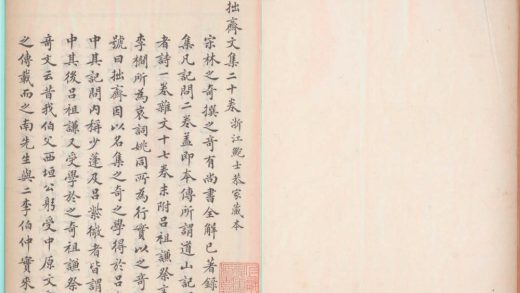 拙齋文集二十卷浙江鮑士恭家藏本
宋林之奇撰之奇有尚書全解已著録
集凡記問二卷蓋即本傳所謂道山記
者詩一卷雜文十七卷末附吕祖謙祭
李櫚所為哀詞姚同所為行實以之奇
號曰拙齋因以名集之奇之學得於吕
中其記問内稱少蓬及吕紫微者皆謂
中其後吕祖謙又受學於之奇祖謙祭
奇文云昔我伯父西垣公躬受中原文
之傳載而之南先生與二李伯仲實來